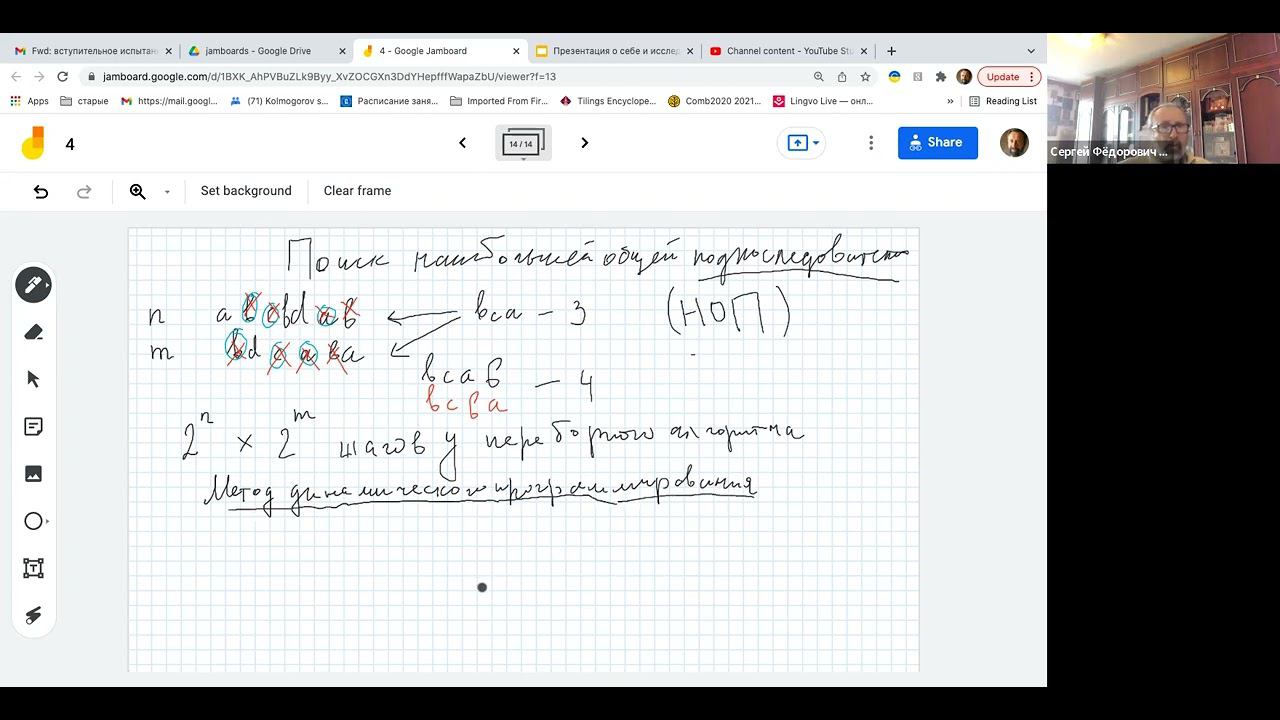 Fwd: вступительное испытан
jamboards - Google Drive
4 - Google Jamboard
Презентация о себе и иссле
Channel content - YouTube Stu
jamboard.google.com/d/1BXK_AhPVBuZLk9Byy_XvZOCGXn3DdYHepfffWapaZbU/viewer?f=13
Update
Apps
старые
https://mail.googl...
(71) Kolmogorov s...
Расписание заня...
Imported From Fir...
Tilings Encyclope...
Comb2020 2021...
Lingvo Live — онл...
»
Reading List
Сергей Фёдорович ...
4
14 / 14
Share
Set background
Clear frame
Поиск наибольшей общей подпоследовательн
n a b c b d a b bca – 3 (НОП)
m b d c a b a
bcab – 4
bcba
2^n × 2^m шагов у переборного алгоритма
Метод динамического программирования